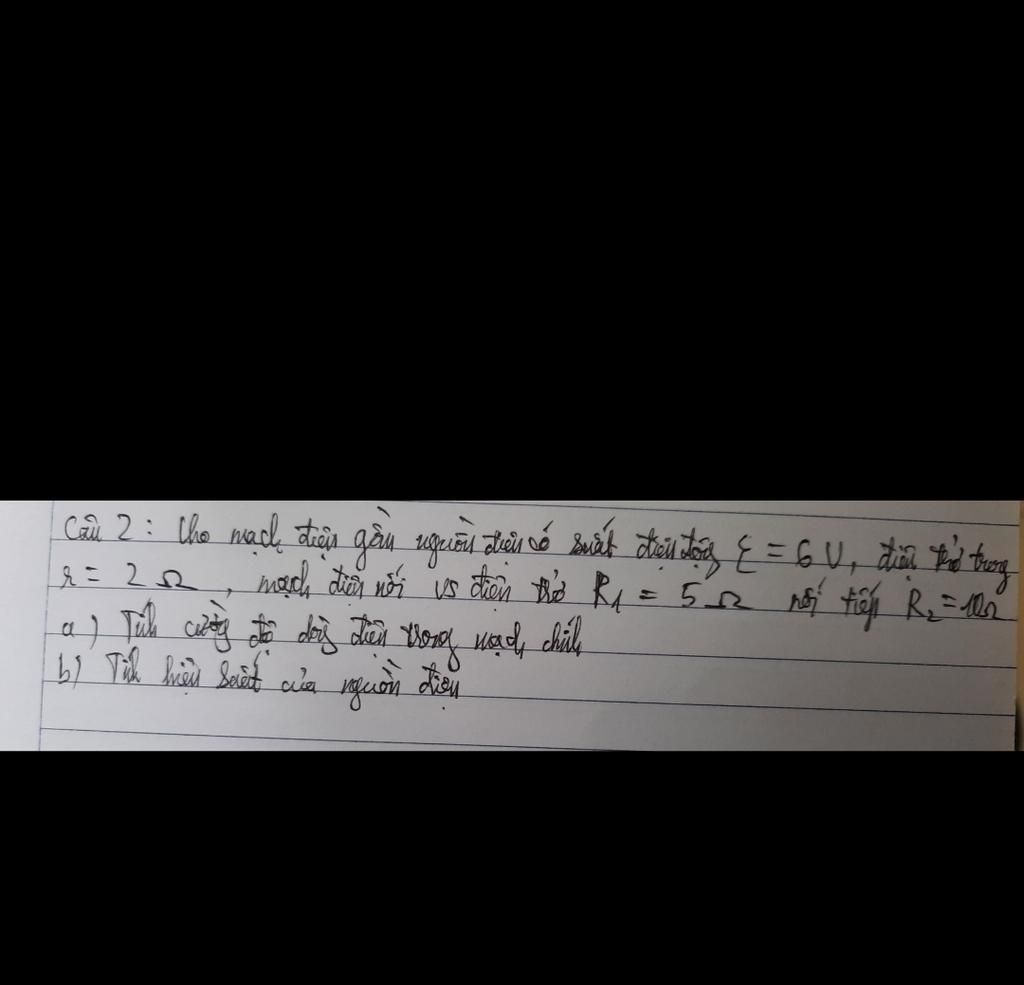 Câu 2: Cho mạch điện gồm nguồn điện có suất điện động ξ = 6 V, điện trở trong
r = 2 Ω, mạch điện nối vs điện trở R1 = 5 Ω nối tiếp R2 = 10Ω
a) Tính cường độ dòng điện trong mạch chính
b) Tính hiệu suất của nguồn điện